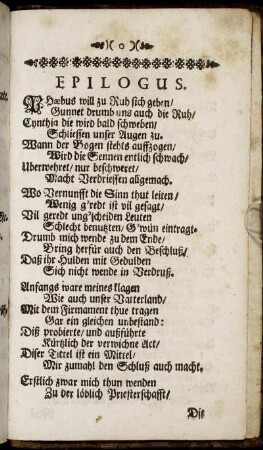 o
EPILOGUS.
PHœbus will zu Ruh sich geben/
Gunnet drumb uns auch die Ruh/
Cynthia die wird bald schweben/
Schliessen unser Augen zu.
Wann der Bogen stehts auffzogen/
Wird die Sennen entlich schwach/
Uberwehret/ nur beschweret/
Macht Verdriessen allgemach.
Wo Vernunfft die Sinn thut leiten/
Wenig g'redt ist vil gesagt/
Vil geredt ung'scheiden Leuten
Schlecht benutzten/ G'wün eintragt.
Drumb mich wende zu dem Ende/
Bring herfür auch den Beschluß/
Daß ihr Hulden mit Gedulden
Sich nicht wende in Verdruß.
Anfangs ware meines klagen
Wie auch unser Vatterland/
Mit dem Firmament thue tragen
Gar ein gleichen unbestand:
Diß probierte/ und außführte
Kürtzlich der verwichne Act/
Diser Tittel ist ein Mittel/
Mir zumahl den Schluß auch macht.
Erstlich zwar mich thun wenden
Zu der löblich Priesterschafft/
Die